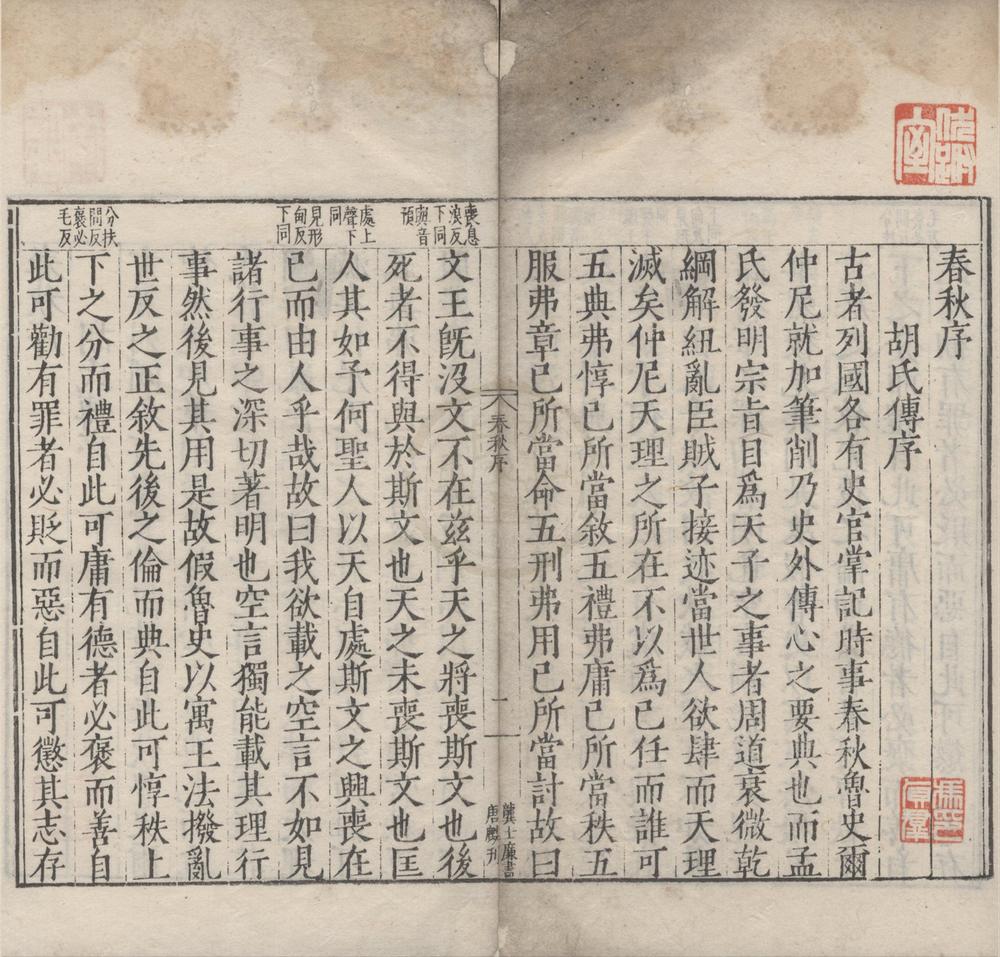 春秋序
胡氏傳序
古者列國各有史官掌記時事春秋魯史爾
仲尼就加筆削乃史外傳心之要典也而孟
氏發明宗旨目爲天子之事者周道衰微乾
綱解紐亂臣賊子接迹當世人欲肆而天理
滅矣仲尼天理之所在不以爲已任而誰可
五典弗惇已所當敘五禮弗庸已所當秩五
服弗章已所當命五刑弗用已所當討故曰
春秋序
一
龔士廉書
唐麟刊
喪息
浪反
下同
與音
預
文王旣沒文不在兹乎天之將喪斯文也後
死者不得與於斯文也天之未喪斯文也匡
處上
聲下
同
人其如予何聖人以天自處斯文之興喪在
見形
甸反
下同
已而由人乎哉故曰我欲載之空言不如見
諸行事之深切著明也空言獨能載其理行
事然後見其用是故假魯史以寓王法撥亂
世反之正敘先後之倫而典自此可惇秩上
分扶
問反
褒必
毛反
下之分而禮自此可庸有德者必褒而善自
此可勸有罪者必貶而惡自此可懲其志存